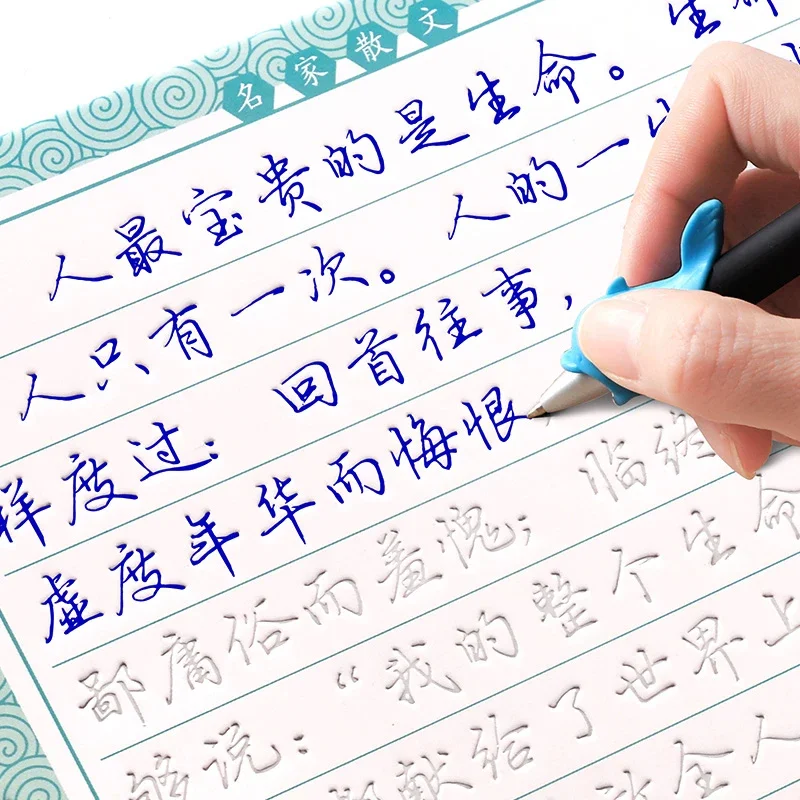 名家散文
人最宝贵的是生命。生命
人只有一次。人的一生
样度过：回首往事，
虚度年华而悔恨
鄙庸俗而羞愧；临终
够说：“我的整个生命
都献给了世界上
放全人